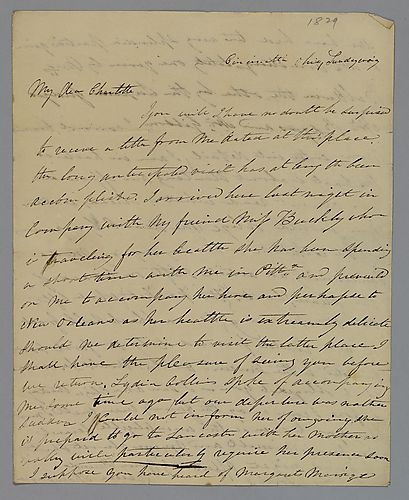 1829
Cincinatti
My Dear Charlotte
You will I have no doubt be surprised
to receive a letter from me dated at this place.
the long anticipated visit has at length been
accomplished. I arrived here last night in
Company with my friend Miss who
is traveling for her health she has been spending
a short time with me in Pittsg and prevailed
on me to accompany her here and perhaps to
New Orleans as her health is extreamly delicate
should we determine to visit the latter place I
shall have the pleasure of seeing you before
we return. Lydia Collins spoke of accompanying
me some time ago but our departure was rather
sudden I could not inform her of our going she
is prepared to go to Lancaster with her Mother as
will particularly require her presence soon
I suppose you have heard of Margaret